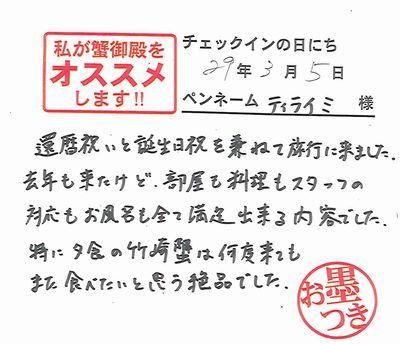 私が蟹御殿を
オススメ
します!!
チェックインの日にち
29年3月5日
ペンネーム ティライミ 様
還暦祝いと誕生日祝を兼ねて旅行に来ました.
去年も来たけど、部屋も料理もスタッフの
対応もお風呂も全て満足出来る内容でした.
特に夕食の竹崎蟹は何度来ても
また食べたいと思う絶品でした.
お墨つき